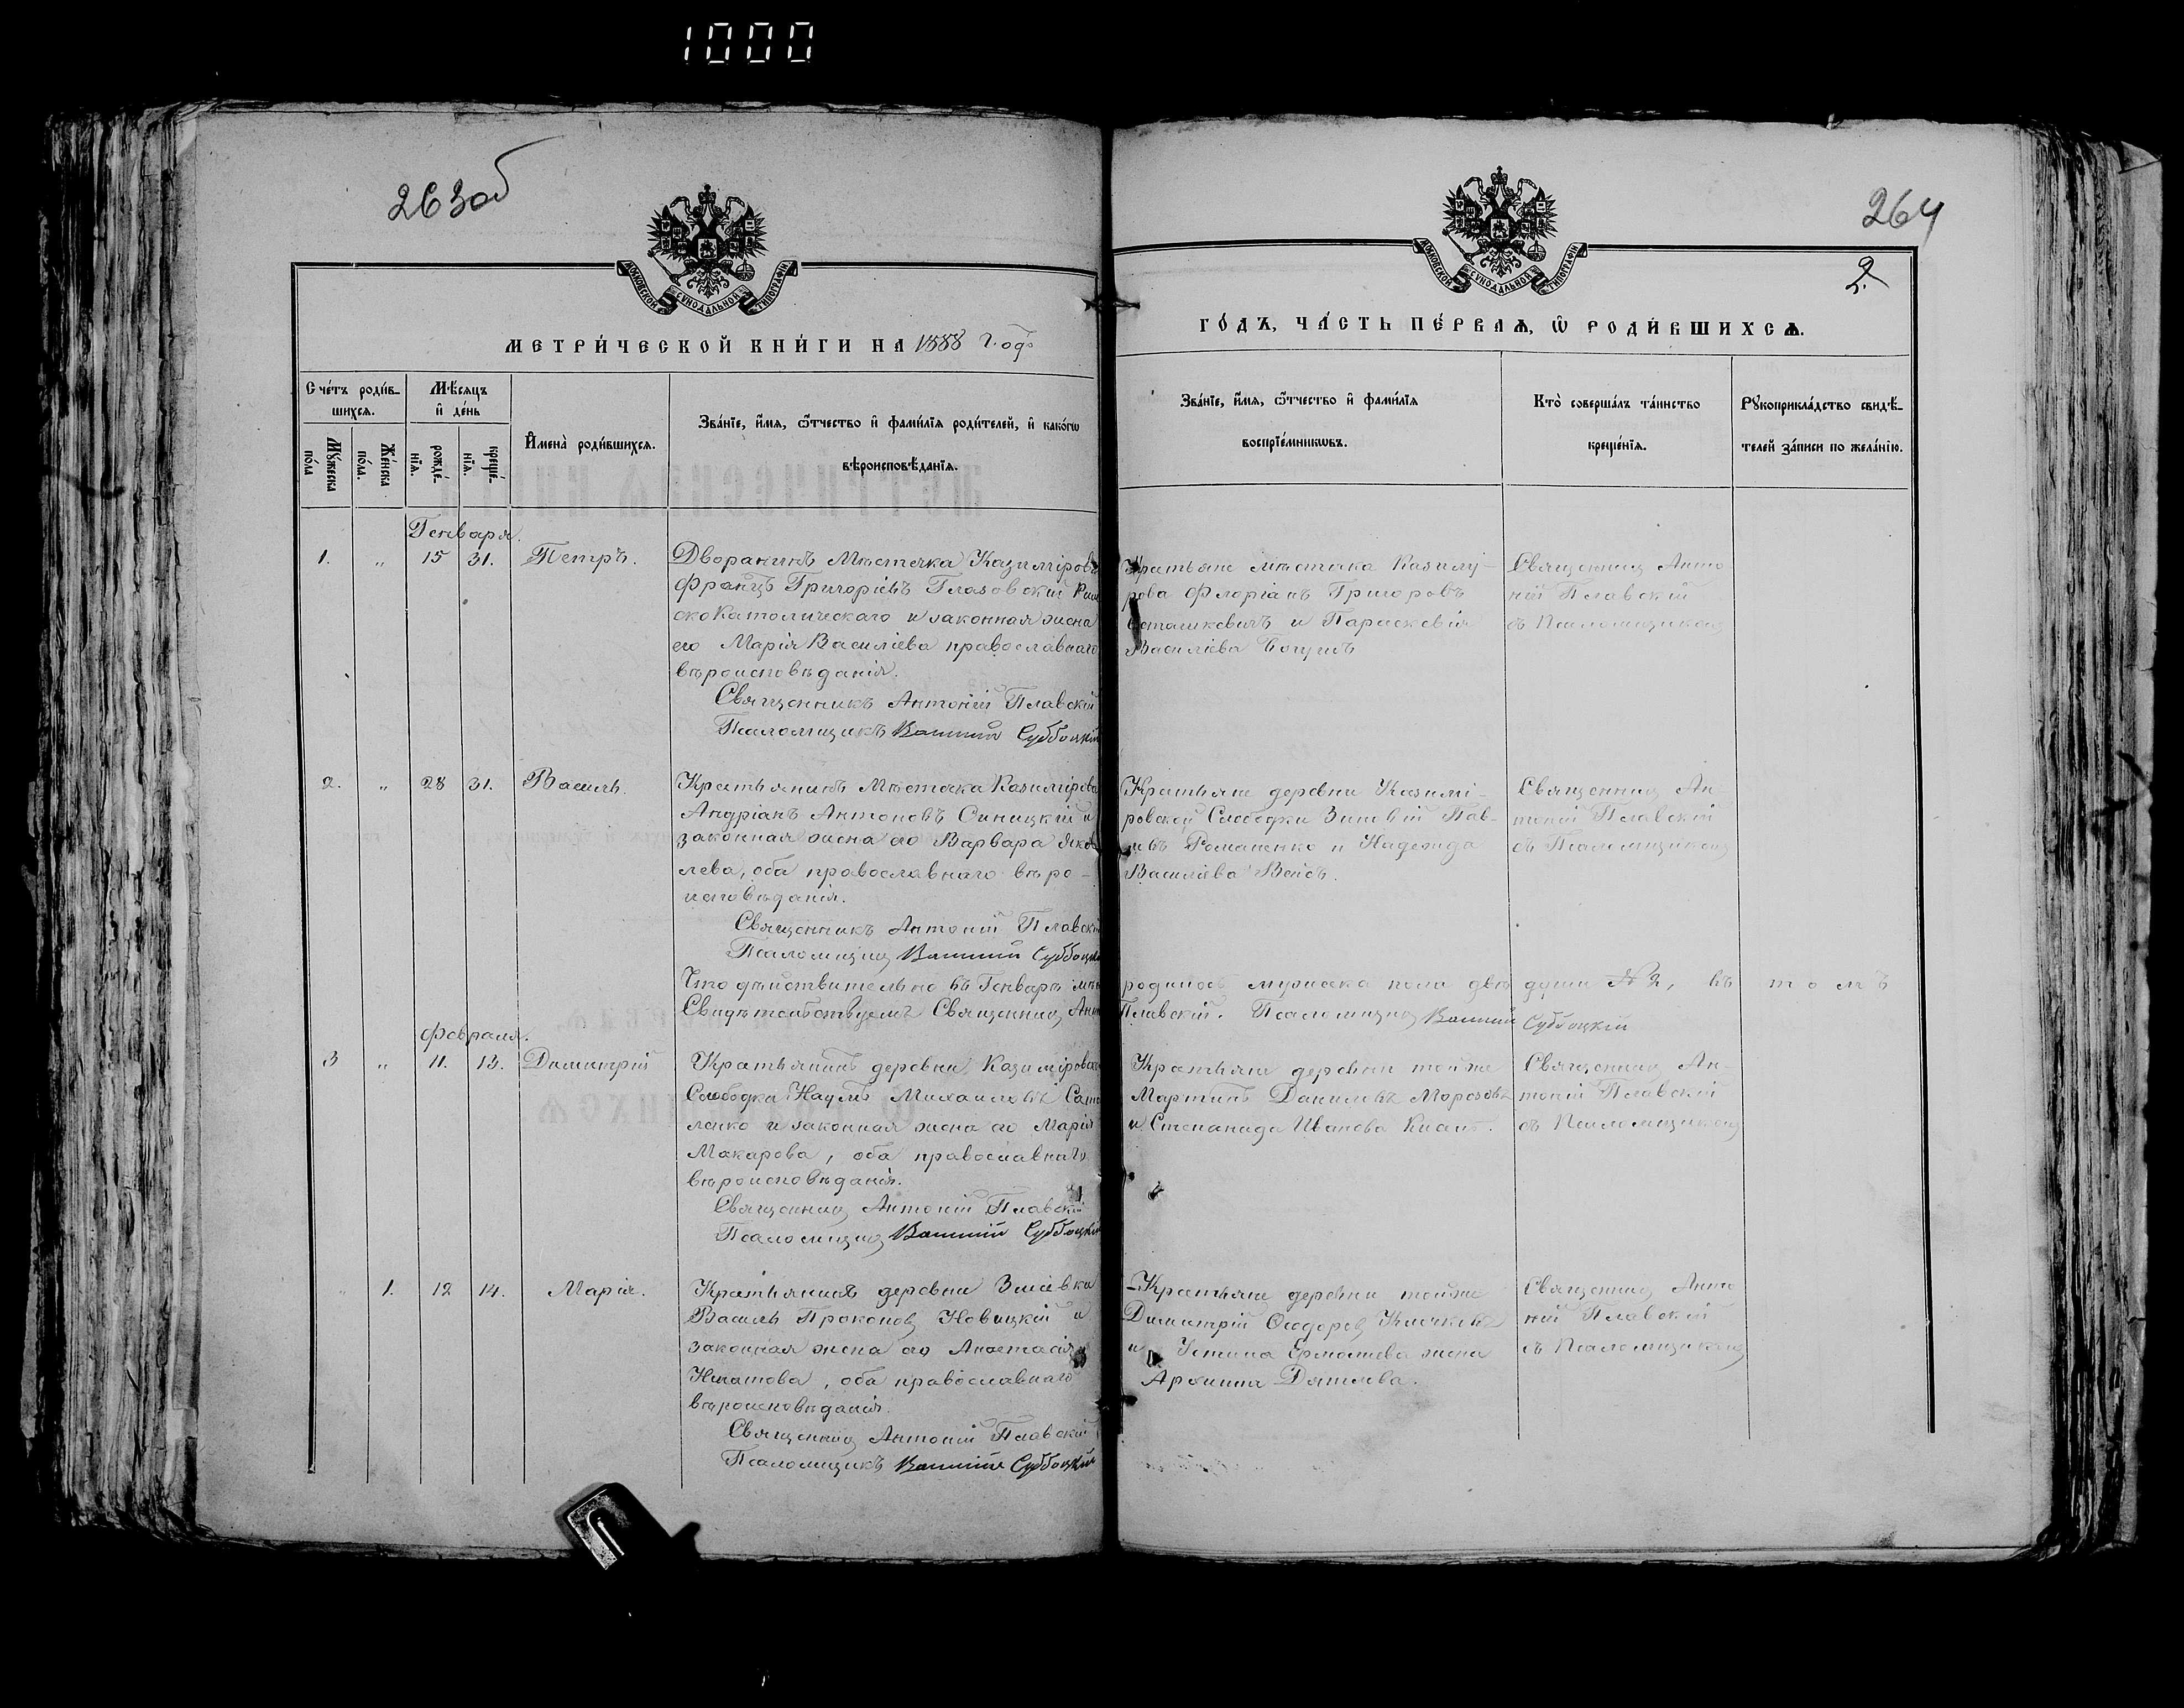 1000
263 об
264
2.
МОСКОВСКОЙ СУНОДАЛЬНОЙ ТИПОГРАФІИ
МОСКОВСКОЙ СУНОДАЛЬНОЙ ТИПОГРАФІИ
МЕТРИ́ЧЕСКОЙ КНИ́ГИ НА 1888 Годъ
ГО́ДЪ, ЧА́СТЬ ПЕ́РВАѦ, Ѽ РОДИ́ВШИХСѦ.
Сче́тъ роди́в-
шихсѧ.
Мѣ́сѧцъ
и҆ де́нь
Мꙋ́жеска
по́ла
Же́нска
по́ла.
рожде́-
нїѧ.
креще́-
нїѧ.
И҆мена̀ роди́вшихсѧ.
Зва́нїе, и҆́мѧ, ѻ҆́тчество и҆ фами́лїѧ роди́телей, и҆ како́гѡ
вѣроисповѣ́данїѧ.
Зва́нїе, и҆́мѧ, ѻ҆́тчество и҆ фами́лїѧ
воспрїе́мникѡвъ.
Кто̀ соверша́лъ та́инство
креще́нїѧ.
Рꙋкоприкла́дство свидѣ́-
телей за́писи по жела́нїю.
Генваря.
1. „ 15 31. Петръ.
Дворанинъ Мѣстечка Казимірова
Францъ Григоріевъ Глазовскій Рим
скокатолическаго и законная жена
его Марія Василіева православнаго
вѣроисповѣданія.
Священникъ Антоній Плавскій
Псаломщикъ Суббоцкій
Крестьяне мѣстечка Казими-
рова Флоріанъ Григоровъ
Осташкевичъ и Параскевія
Василіева
Священникъ Анто
ній Плавскій
съ Псаломщикомъ
2. „ 28 31. Василь.
Крестьянинъ Мѣстечка Казимірова
Андріанъ Антоновъ Синицкій и
законная жена его Варвара Яков
лева, оба православнаго вѣро-
исповѣданія.
Священникъ Антоній Плавскій
Псаломщикъ Суббоцкій
Крестьяне деревни Казимі-
ровской Слободки Зиновій Пав-
ловъ Романенко и Надежда
Василіева
Священникъ Ан-
тоній Плавскій
съ Псаломщикомъ
Что дѣйствительно въ Генварѣ мѣс родилось мужеска пола двѣ души № 2, въ томъ
Свидѣтельствуемъ Священникъ Анто Плавскій. Псаломщикъ Суббоцкій
Февраля.
3 „ 11. 13. Димитрій
Крестьянинъ деревни Казиміровской
Слободки Наумъ Михаиловъ
ленко и законная жена его Марія
Макарова, оба православнаго
вѣроисповѣданія.
Священникъ Антоній Плавскій
Псаломщикъ Суббоцкій
Крестьяне деревни тойже
Мартинъ Даниловъ Морозовъ
и Степанида Иванова
Священникъ Ан-
тоній Плавскій
съ Псаломщикомъ
„ 1. 12 14. Марія.
Крестьянинъ деревни Змеевки
Василь Прокоповъ Новицкій и
законная жена его Анастасія
Игнатова, оба православнаго
вѣроисповѣданія.
Священникъ Антоній Плавскій
Псаломщикъ Суббоцкій
Крестьяне деревни тойже
Димитрій Ѳеодоровъ
и Устина Ермолаева жена
Архипа Дятлова.
Священникъ Анто
ній Плавскій
съ Псаломщикомъ